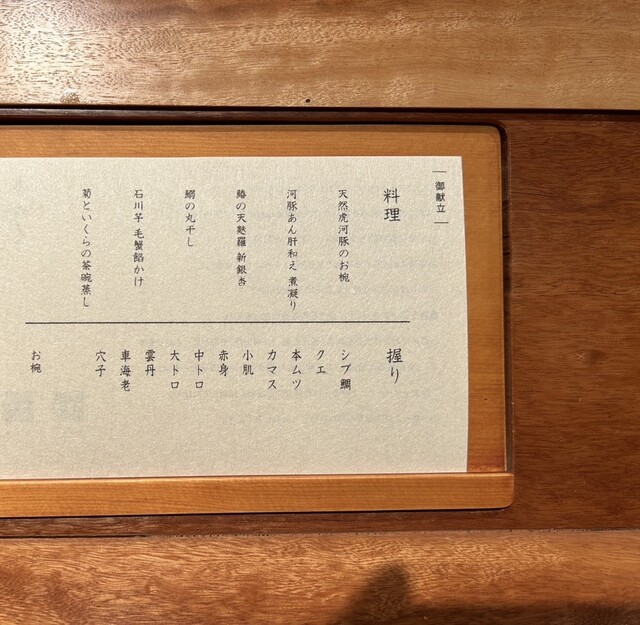 御献立
料理
天然虎河豚のお椀
河豚あん肝和え 煮凝り
鰆の天麩羅 新銀杏
鰯の丸干し
石川芋 毛蟹餡かけ
菊といくらの茶碗蒸し
握り
シブ鯛
クエ
本ムツ
カマス
小肌
赤身
中トロ
大トロ
雲丹
車海老
穴子
お椀